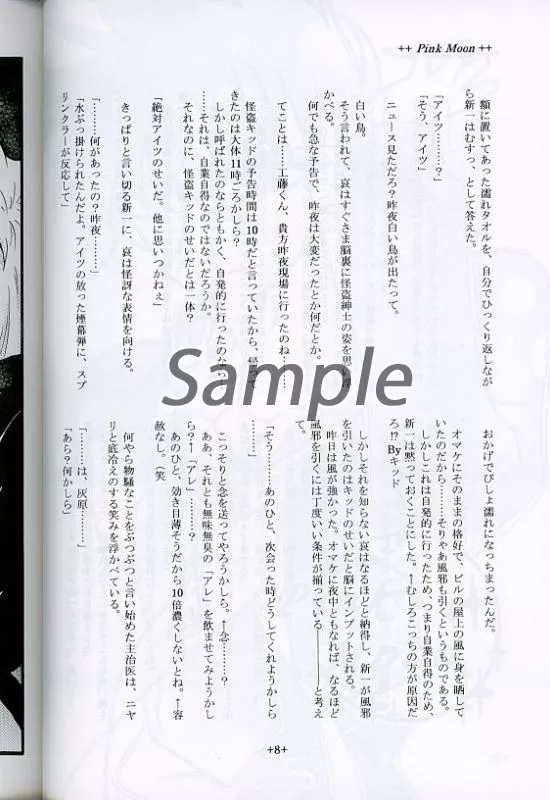 ++ Pink Moon ++
額に置いてあった濡れタオルを、自分でひっくり返しなが
ら新一はむすっ、として答えた。
「アイツ………？」
「そう、アイツ」
ニュース見ただろ？昨夜白い鳥が出たって。
白い鳥。
そう言われて、哀はすぐさま脳裏に怪盗紳士の姿を思い
かべる。
何でも急な予告で、昨夜は大変だったとか何だとか。
てことは……工藤くん、貴方昨夜現場に行ったのね……
怪盗キッドの予告時間は10時だと言っていたから、帰って
きたのは大体11時ごろかしら？
しかし呼ばれたのならともかく、自発的に行ったのなら
……それは、自業自得なのではないだろうか。
それなのに、怪盗キッドのせいだとは一体？
「絶対アイツのせいだ。他に思いつかねぇ」
きっぱりと言い切る新一に、哀は怪訝な表情を向ける。
「………何があったの？昨夜………」
「水ぶっ掛けられたんだよ。アイツの放った煙幕弾に、スプ
リンクラーが反応して」
おかげでびしょ濡れになっちまったんだ。
オマケにそのままの格好で、ビルの屋上の風に身を晒して
いたのだから……そりゃあ風邪も引くというものである。
しかしこれは自発的に行ったため、つまり自業自得のため、
新一は黙っておくことにした。↑むしろこっちの方が原因だ
ろ!? Byキッド
しかしそれを知らない哀はなるほどと納得し、新一が風邪
を引いたのはキッドのせいだと脳にインプットされる。
昨日は風が強かった。オマケに夜中ともなれば、なるほど
風邪を引くには丁度いい条件が揃っている―――と考え
て。
「そう……あのひと、次会った時どうしてくれようかしら
……」
こっそりと念を送ってやろうかしら。↑念……？
ああ、それとも無味無臭の「アレ」を飲ませてみようかし
ら？↑「アレ」………？
あのひと、効き目薄そうだから10倍濃くしないとね。↑容
赦なし。（笑
何やら物騒なことをぶつぶつと言い始めた主治医は、ニヤ
リと底冷えのする笑みを浮かべている。
「………は、灰原……」
「あら？何かしら」
Sample
+8+